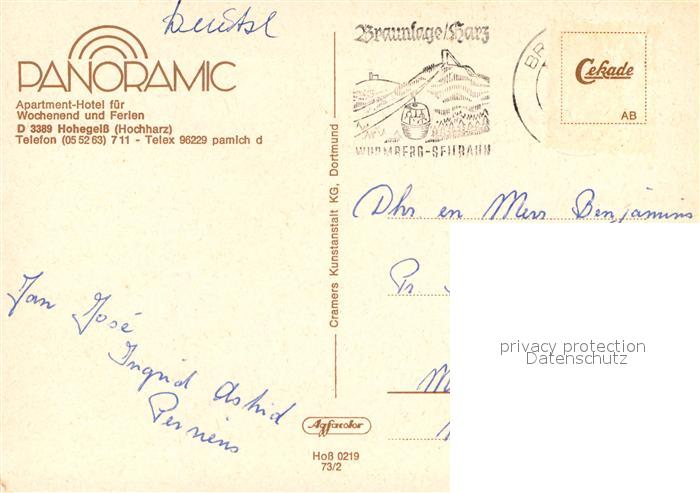 PANORAMIC
Apartment-Hotel für
Wochenend und Ferien
D 3389 Hohegeiß (Hochharz)
Telefon (05 52 63) 7 11 - Telex 96229 pamich d
Jan José
Ingrid Astrid
Cramers Kunstanstalt KG, Dortmund
Braunlage/Harz
WURMBERG-SEILBAHN
BR
Cekade
AB
Dhr en Mevr Benjamins
Agfacolor
Hoß 0219
73/2
privacy protection
Datenschutz